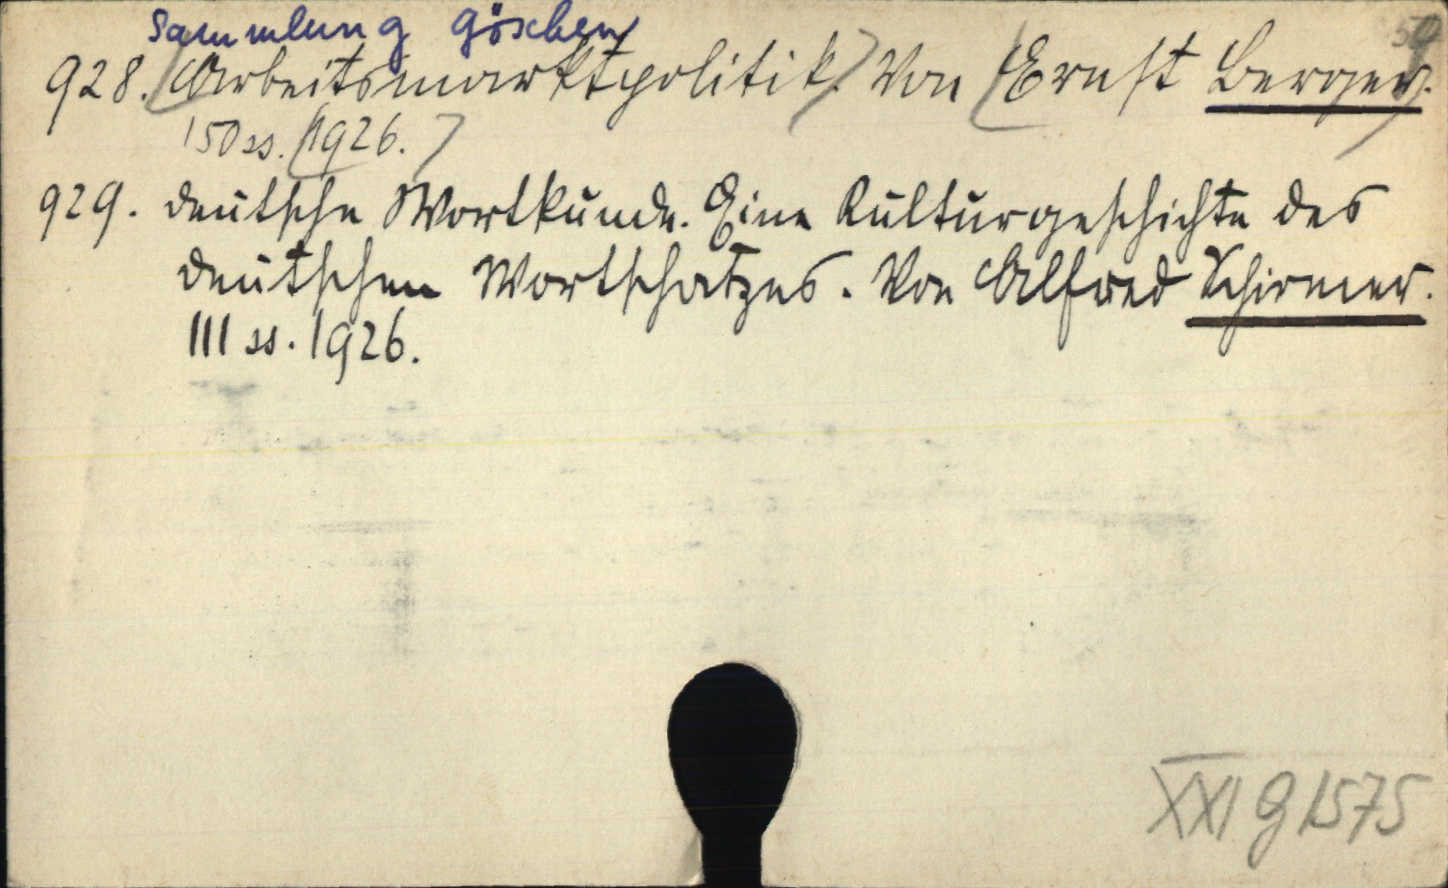 Sammlung Göschen
59
928. (Arbeitsmarktpolitik.) Von (Ernst Berger.)
150 ss. (1926.)
929. Deutsche Wortkunde. Eine Kulturgeschichte des
deutschen Wortschatzes. Von Alfred Schirmer.
111 ss. 1926.
XXI g 1575